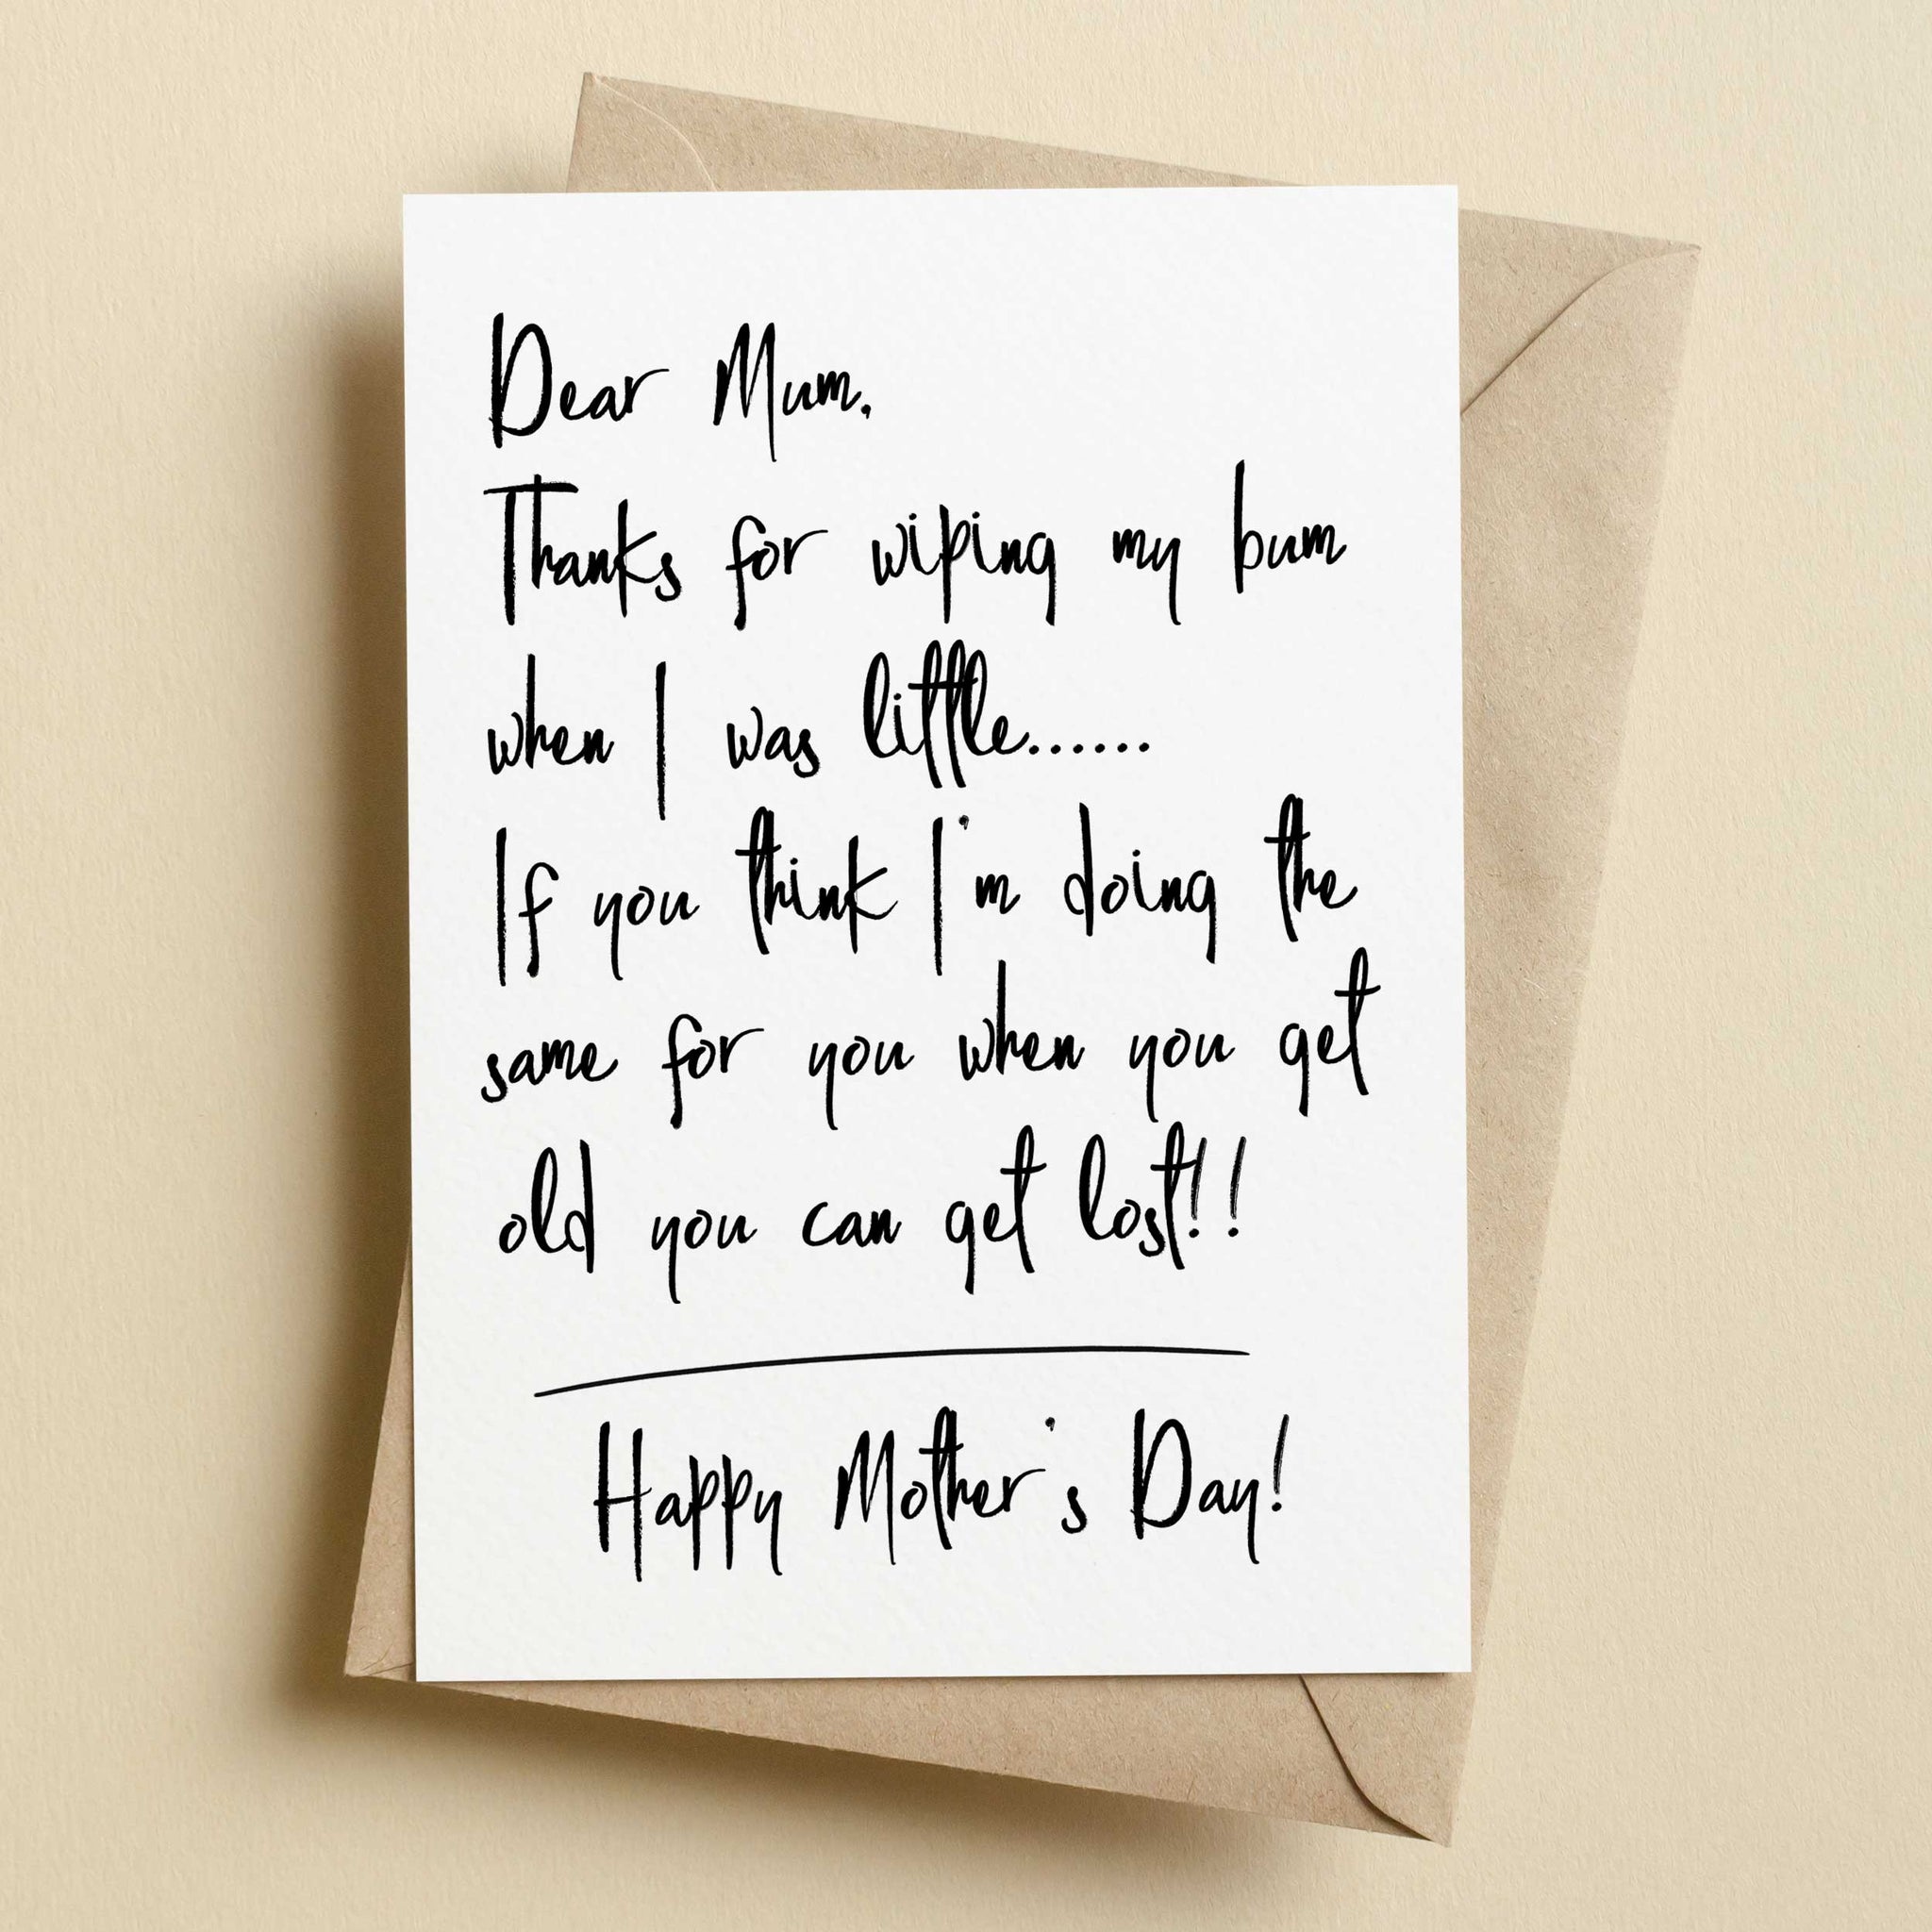 Dear Mum,
Thanks for wiping my bum
when I was little......
If you think I'm doing the
same for you when you get
old you can get lost!!
Happy Mother's Day!